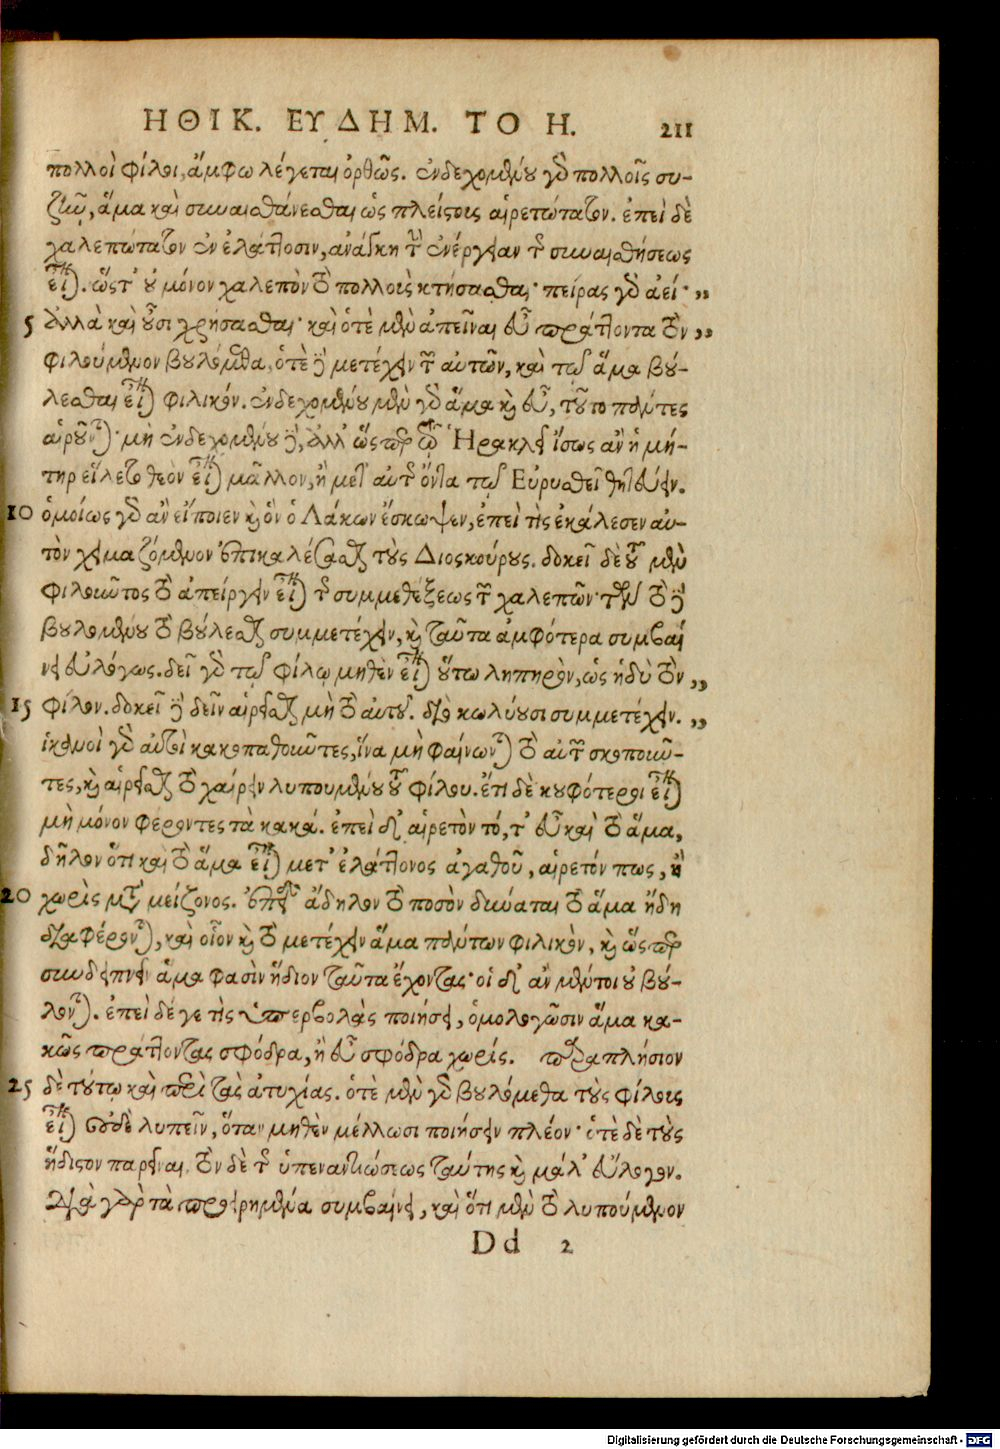 ΗΘΙΚ. ΕΥΔΗΜ. ΤΟ Η. 211
πολλοὶ φίλοι, ἄμφω λέγεται ὀρθῶς. ἐνδεχομένου γὸ πολλοῖς συ-
ζῆν, ἅμα καὶ συναισθάνεσθαι ὡς πλείστοις αἱρετώτατον. ἐπεὶ δὲ
χαλεπώτατον ἐν ἐλάττοσιν, ἀνάγκη τὴν ἐνέργειαν τῆς συναισθήσεως
εἶναι. ὥστ' οὐ μόνον χαλεπὸν τὸ πολλοὺς κτήσασθαι· πείρας γὸ ἀεί· „
5 ἀλλὰ καὶ οὖσι χρήσασθαι· καὶ ὁτὲ μὲν ἀπεῖναι εὖ πράττοντα τὸν „
φιλούμενον βουλόμεθα, ὁτὲ δὲ μετέχειν τῶν αὐτῶν, καὶ τὸ ἅμα βού-
λεσθαι εἶναι φιλικόν. ἐνδεχομένου μὲν γὸ ἅμα καὶ εὖ, τοῦτο πάντες
αἱροῦνται· μὴ ἐνδεχομένου δὲ, ἀλλ' ὥσπερ τὸν Ἡρακλῆ ἴσως ἂν ἡ μή-
τηρ εἵλετο θεὸν εἶναι μᾶλλον, ἢ μετ' αὐτῆς ὄντα τῷ Εὐρυσθεῖ θητεύειν.
10 ὁμοίως γὸ ἂν εἴποιεν καὶ ὃν ὁ Λάκων ἔσκωψεν, ἐπεὶ τὶς ἐκάλεσεν αὐ-
τὸν χειμαζόμενον ἐπικαλέσασθαι τοὺς Διοσκούρους. δοκεῖ δὲ τοῦ μὲν
φιλοῦντος τὸ ἀπείργειν εἶναι τῆς συμμεθέξεως τῶν χαλεπῶν· τοῦ δὲ
βουλομένου τὸ βούλεσθαι συμμετέχειν, καὶ ταῦτα ἀμφότερα συμβαί
νει εὐλόγως. δεῖ γὸ τῷ φίλῳ μηθὲν εἶναι οὕτω λυπηρὸν, ὡς ἡδὺ τὸν „
15 φίλον. δοκεῖ δὲ δεῖν αἱρεῖσθαι μὴ τὸ αὑτοῦ. διὸ κωλύουσι συμμετέχειν. „
ἱκανοὶ γὸ αὐτοὶ κακοπαθοῦντες, ἵνα μὴ φαίνωνται τὸ αὑτῶν σκοποῦν-
τες, καὶ αἱρεῖσθαι τὸ χαίρειν λυπουμένου τοῦ φίλου. ἔτι δὲ κουφότεροι εἶναι
μὴ μόνον φέροντες τὰ κακά. ἐπεὶ δ' αἱρετὸν τό, τ' εὖ καὶ τὸ ἅμα,
δῆλον ὅτι καὶ τὸ ἅμα εἶναι μετ' ἐλάττονος ἀγαθοῦ, αἱρετόν πως, ἢ
20 χωρὶς μετὰ μείζονος. ἐπεὶ δὲ ἄδηλον τὸ ποσὸν δύναται τὸ ἅμα ἤδη
διαφέρονται, καὶ οἷον καὶ τὸ μετέχειν ἅμα πάντων φιλικὸν, καὶ ὥσπερ
συνδειπνεῖν ἅμα φασὶν ἥδιον ταῦτα ἔχοντας· οἱ δ' ἂν μέντοι οὐ βού-
λονται. ἐπεὶ δέ γε τὶς ὑπερβολὰς ποιήσει, ὁμολογῶσιν ἅμα κα-
κῶς πράττοντας σφόδρα, ἢ εὖ σφόδρα χωρίς. παραπλήσιον
25 δὲ τούτῳ καὶ περὶ τὰς ἀτυχίας. ὁτὲ μὲν γὸ βουλόμεθα τοὺς φίλους
εἶναι οὐδὲ λυπεῖν, ὅταν μηθὲν μέλλωσι ποιήσειν πλέον· ὁτὲ δὲ τοὺς
ἥδιστον παρεῖναι. τὸν δὲ τῆς ὑπεναντιώσεως ταύτης καὶ μάλ' εὔλογον.
Διὰ γὰρ τὰ προειρημένα συμβαίνει, καὶ ὅτι μὲν τὸ λυπούμενον
Dd 2
Digitalisierung gefördert durch die Deutsche Forschungsgemeinschaft - DFG